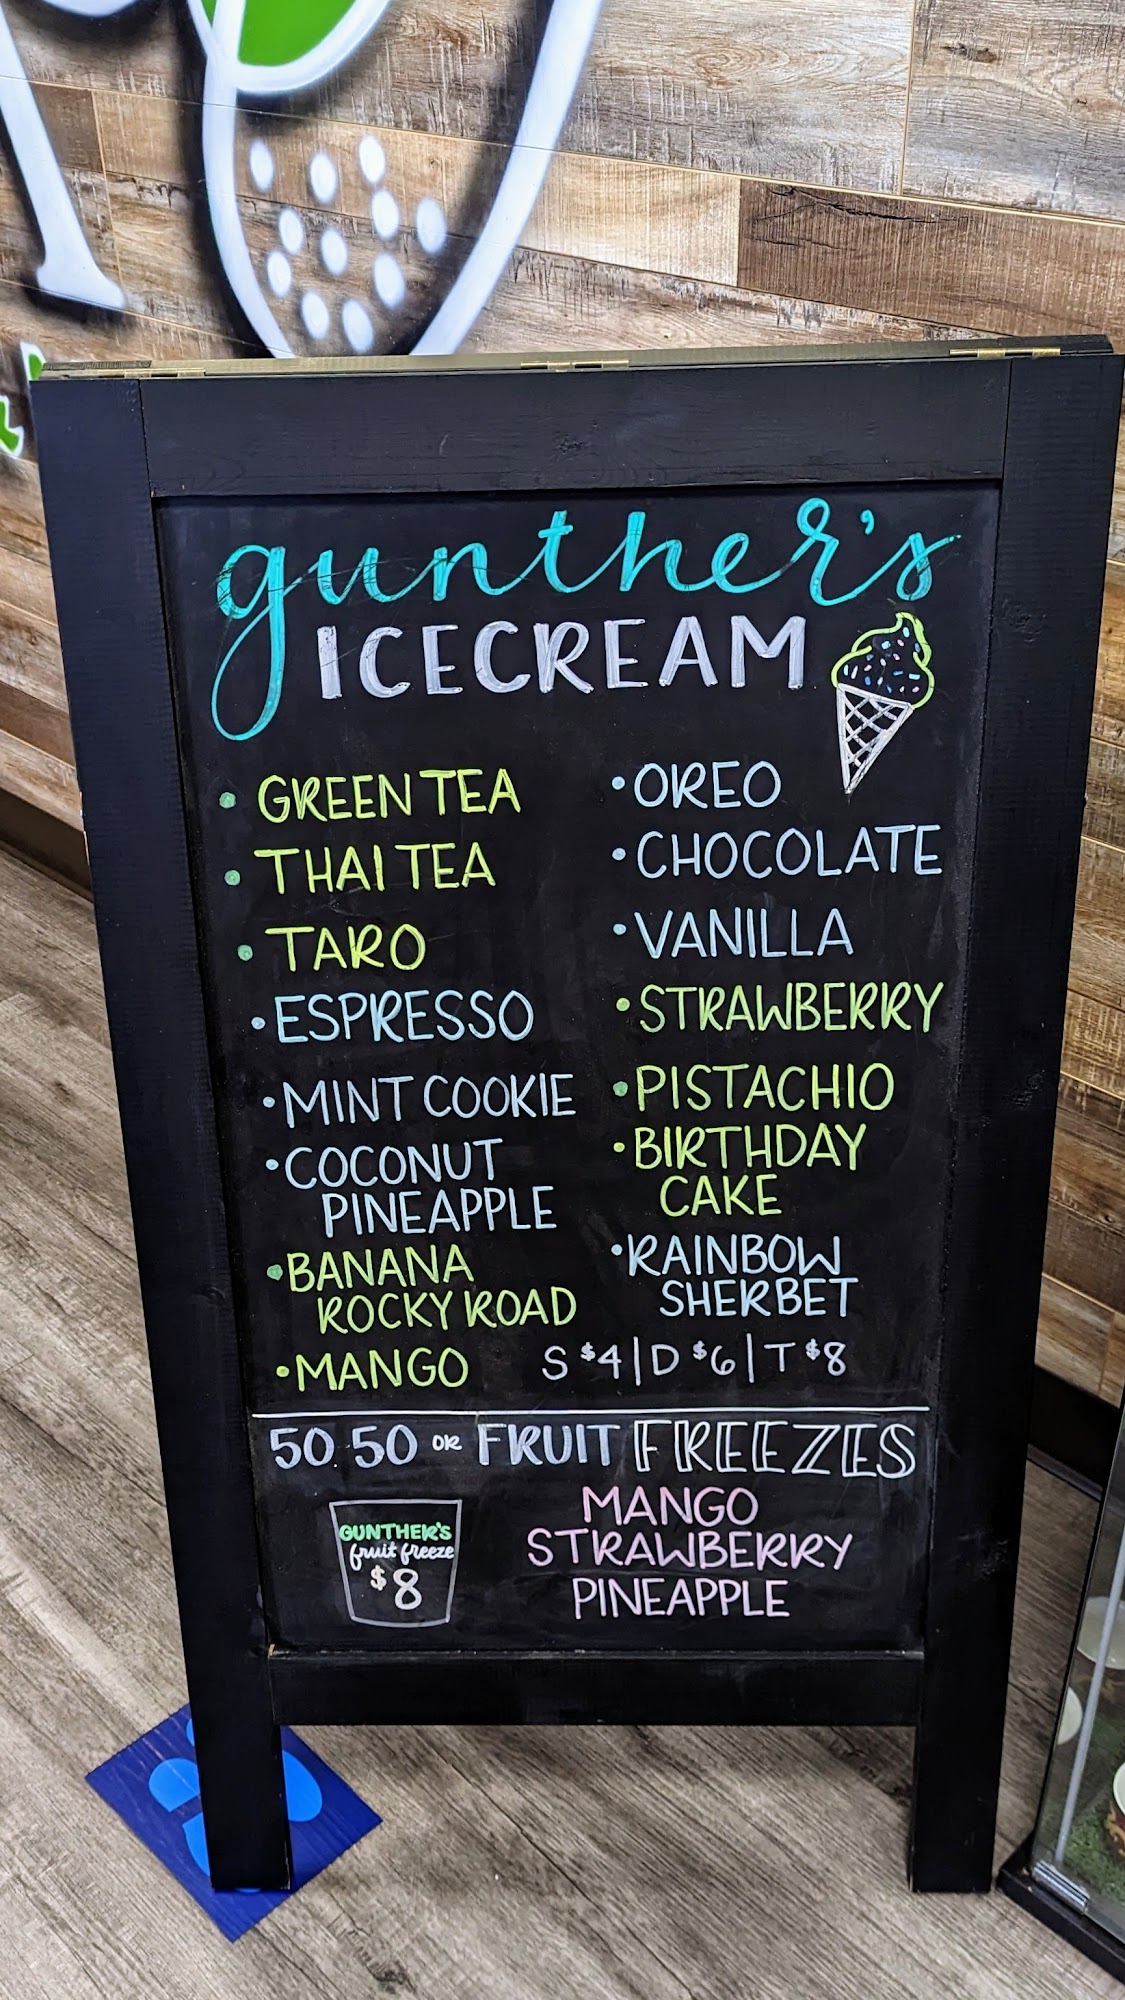 gunther's
ICECREAM
• GREEN TEA
• THAI TEA
• TARO
• ESPRESSO
• MINT COOKIE
• COCONUT
PINEAPPLE
• BANANA
ROCKY ROAD
• MANGO
• OREO
• CHOCOLATE
• VANILLA
• STRAWBERRY
• PISTACHIO
• BIRTHDAY
CAKE
• RAINBOW
SHERBET
S $4 | D $6 | T $8
50.50 OR FRUIT FREEZES
GUNTHER'S
fruit freeze
$8
MANGO
STRAWBERRY
PINEAPPLE